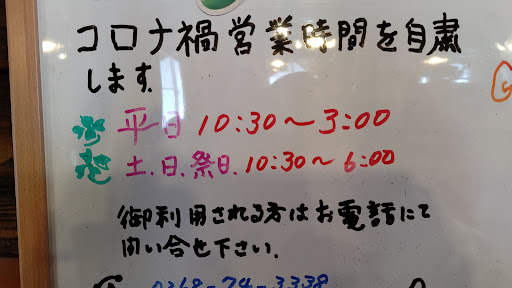 コロナ禍営業時間を自粛
します.
平日 10:30〜3:00
土.日.祭日.10:30〜6:00
御利用される方はお電話にて
問い合せ下さい.
0268-74-3338